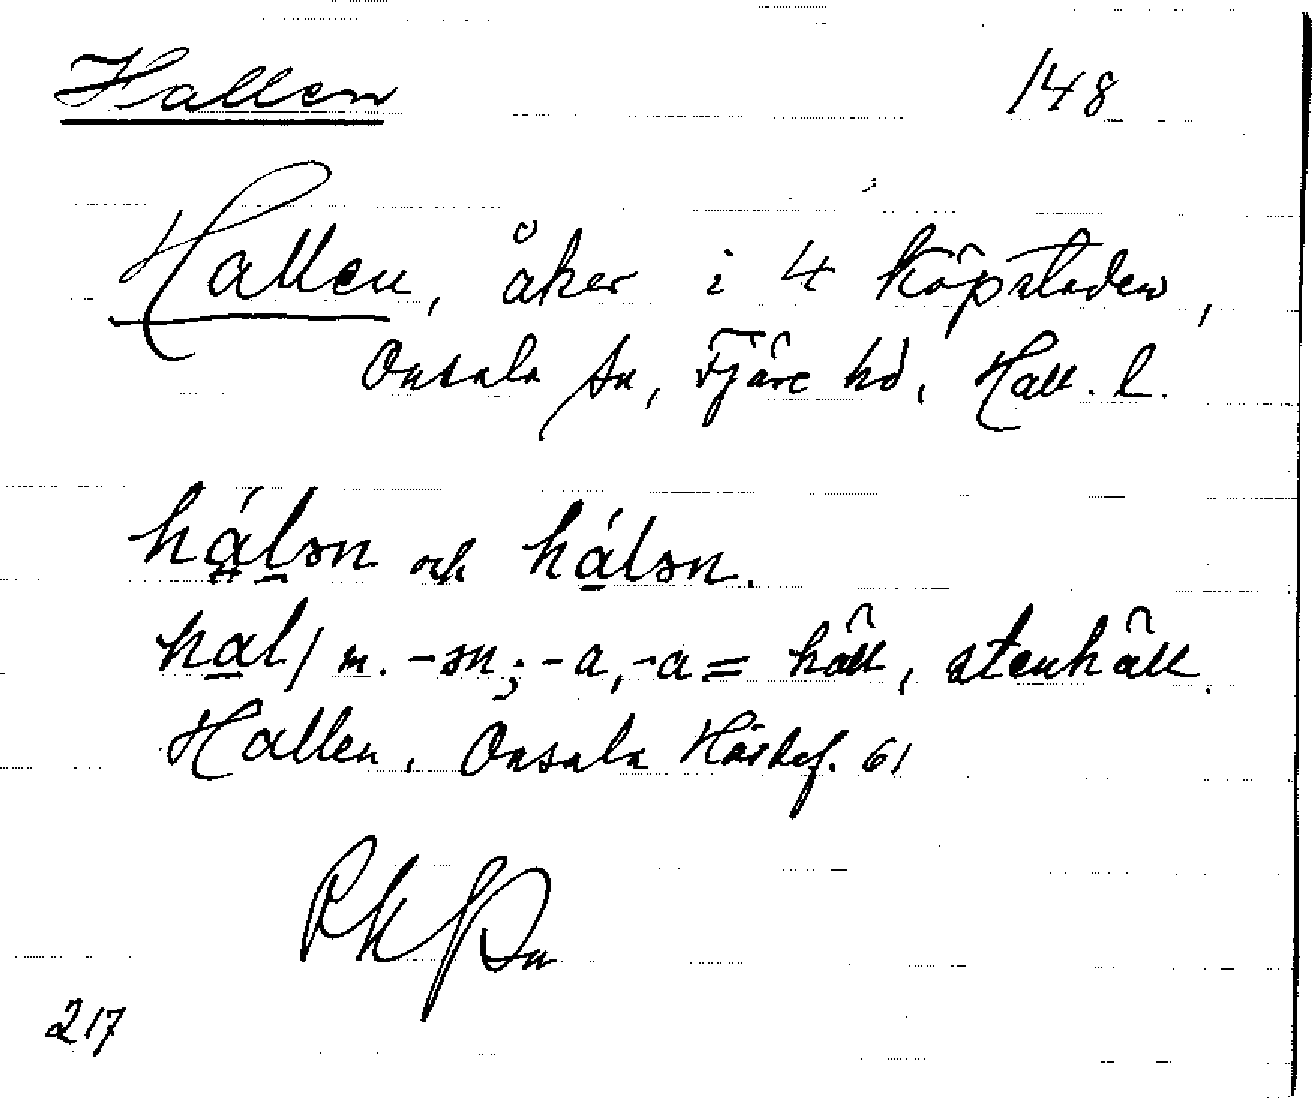 Hallen 148
Hallen, åker i 4 Köpstaden,
Onsala sn, Fjäre hd, Hall. l.
hálən och hálən.
hal/ m. -ən; -a, -a = häll, stenhäll.
Hallen. Onsala 61
217